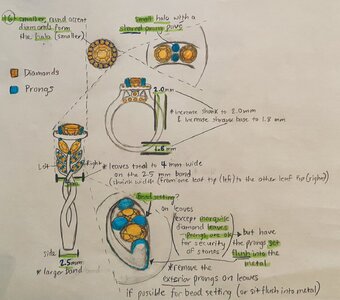 16 smaller, round accent
diamonds form
the halo (smaller)
Small halo with a
shared prong pave
Diamonds
Prongs
2.0mm
* increase shank to 2.0mm
& increase shragee base to 1.8 mm
1.8 mm
Left
Right
* leaves total to 4 mm wide
on the 2.5 mm band
(shank width) (from one leaf tip (left) to the other leaf tip (right))
Bead setting?
on leaves
except marquile
diamond leaves
Prongs are ok
for security
of stones
but have
the prongs set
flush into the
metal
Side
2.5mm
* larger band
* remove the
exterior prongs on leaves
if possible for bead setting (or sit flush into metal)